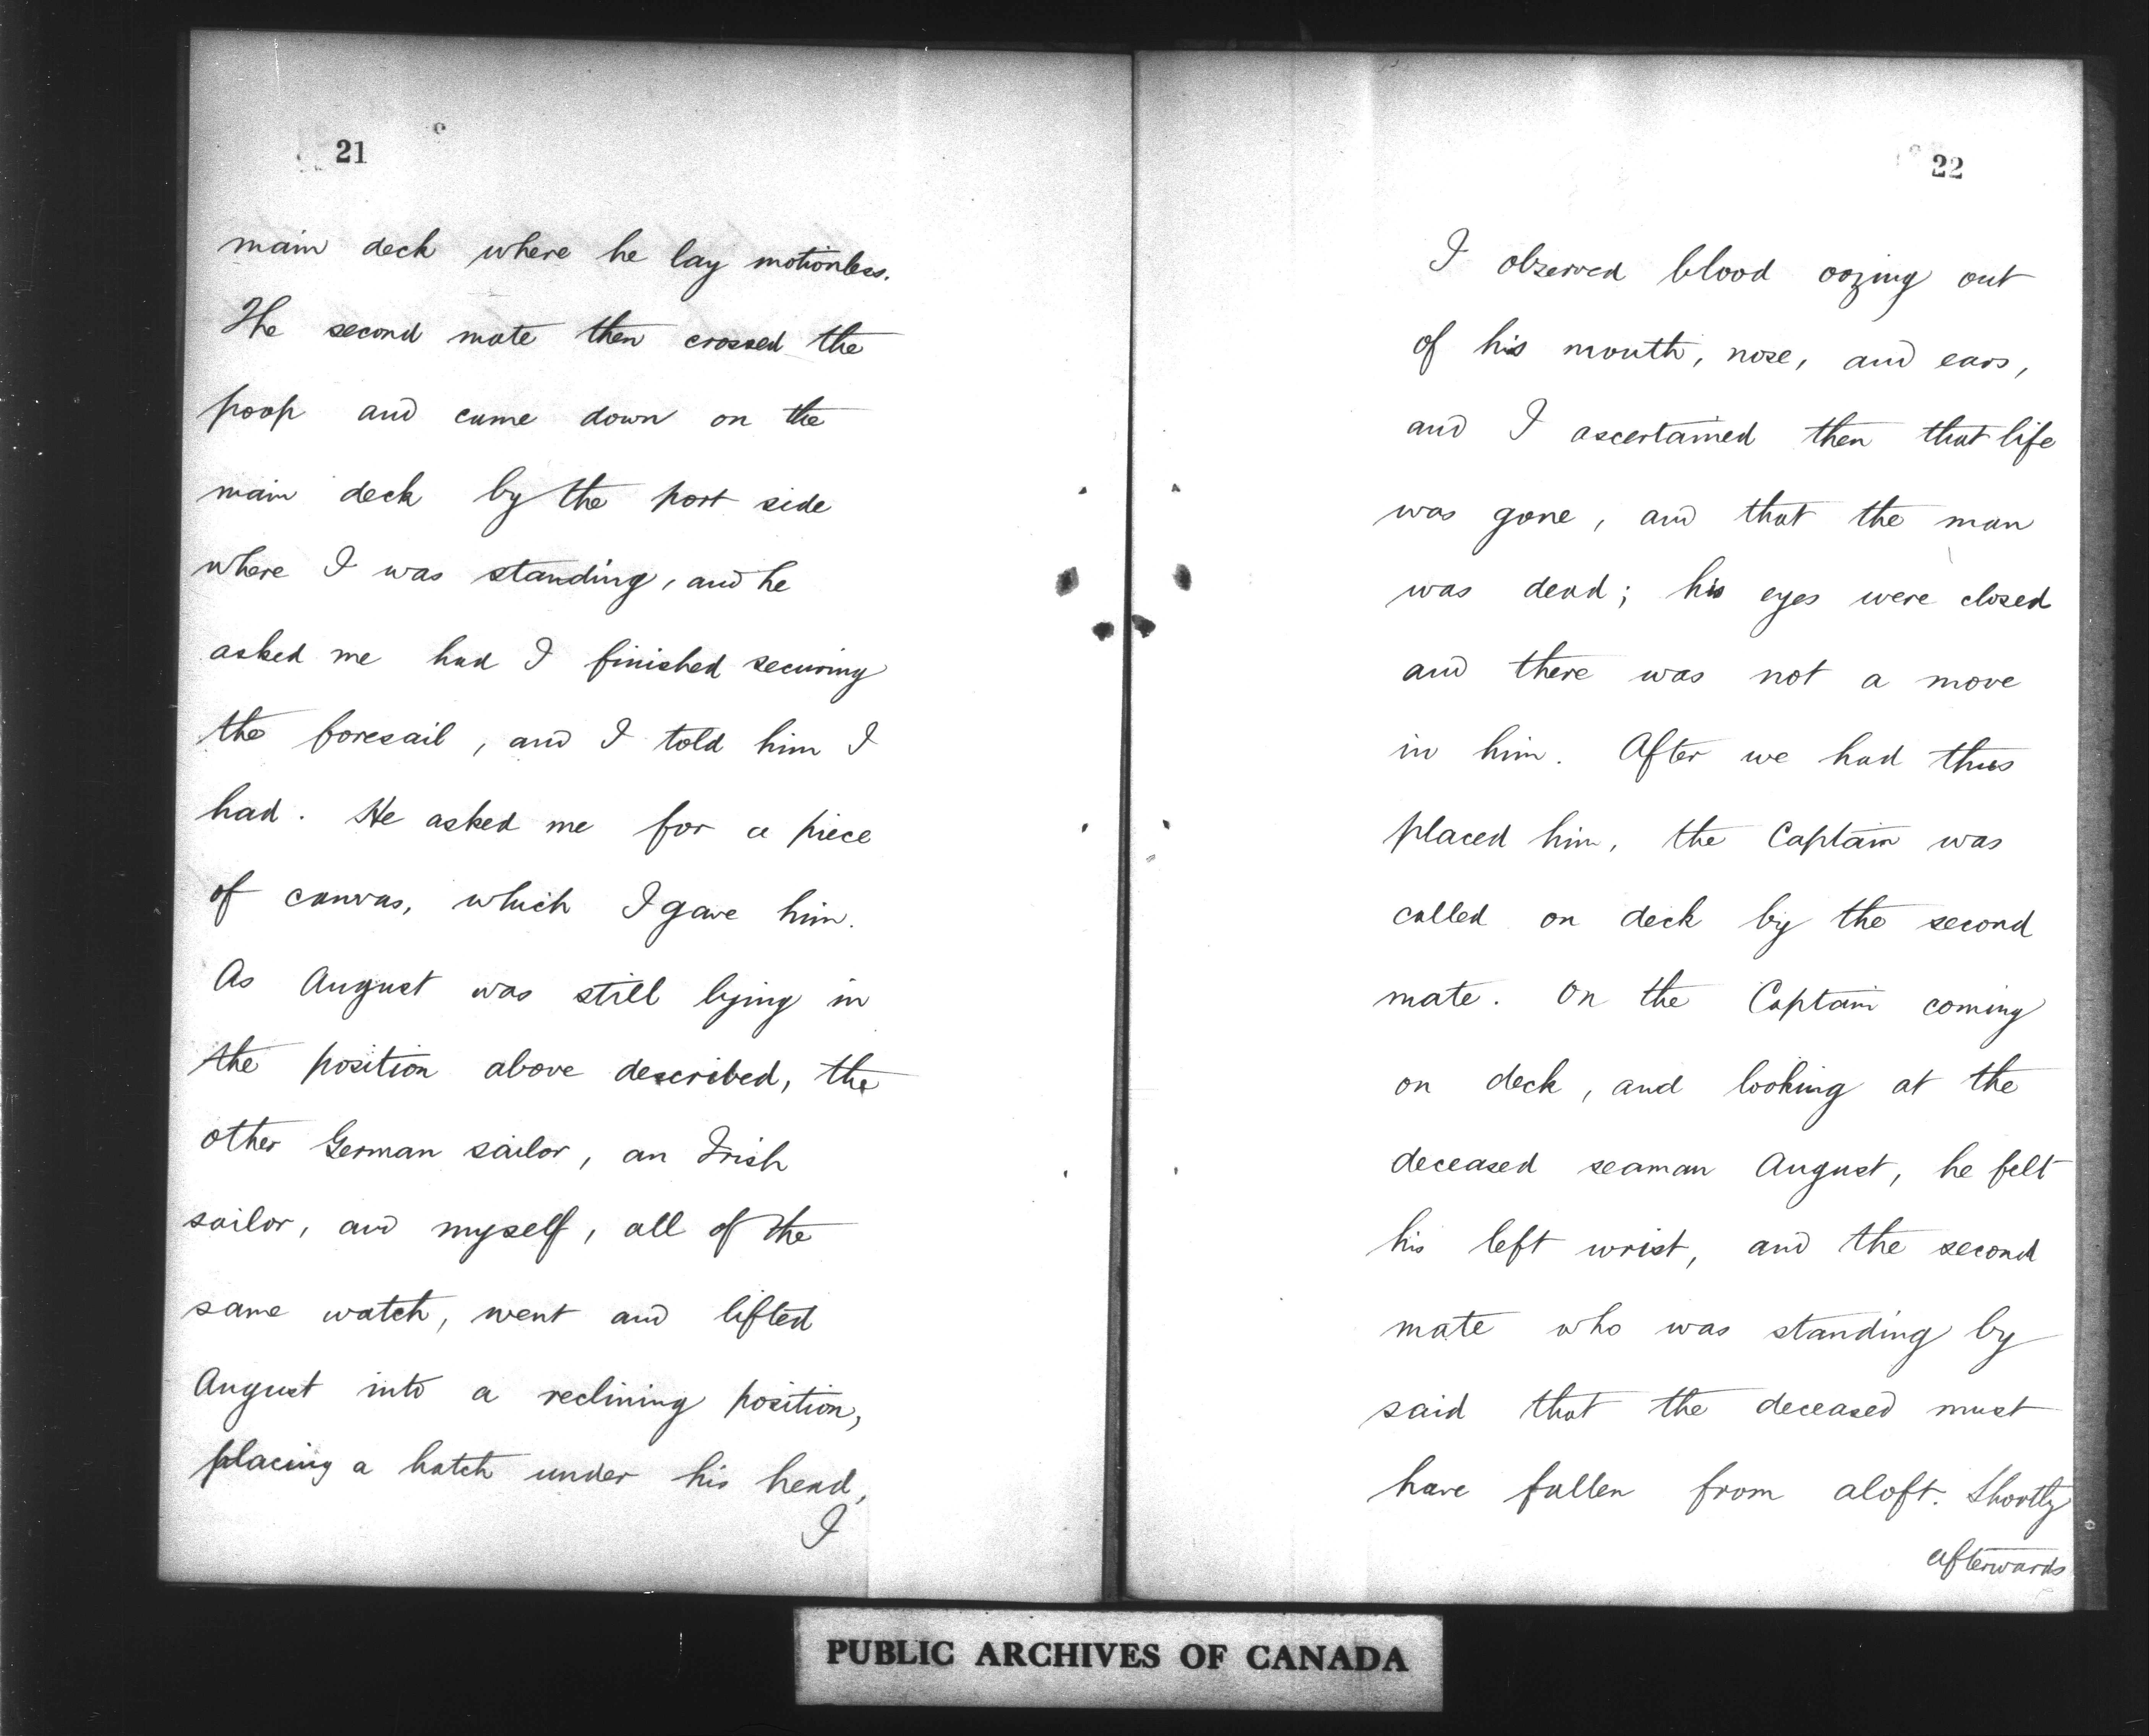 21
main deck where he lay motionless.
The second mate then crossed the
poop and came down on the
main deck by the port side
where I was standing, and he
asked me had I finished securing
the foresail, and I told him I
had. He asked me for a piece
of canvas, which I gave him.
As August was still lying in
the position above described, the
other German sailor, an Irish
sailor, and myself, all of the
same watch, went and lifted
August into a reclining position,
placing a hatch under his head,
I
22
I observed blood oozing out
of his mouth, nose, and ears,
and I ascertained then that life
was gone, and that the man
was dead; his eyes were closed
and there was not a move
in him. After we had thus
placed him, the Captain was
called on deck by the second
mate. On the Captain coming
on deck, and looking at the
deceased seaman August, he felt
his left wrist, and the second
mate who was standing by
said that the deceased must
have fallen from aloft. Shortly
afterwards
PUBLIC ARCHIVES OF CANADA